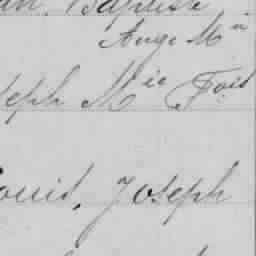 Baptiste,
Ange Mⁿ
eph Mⁱᵉ Foiˢ
ouis, Joseph